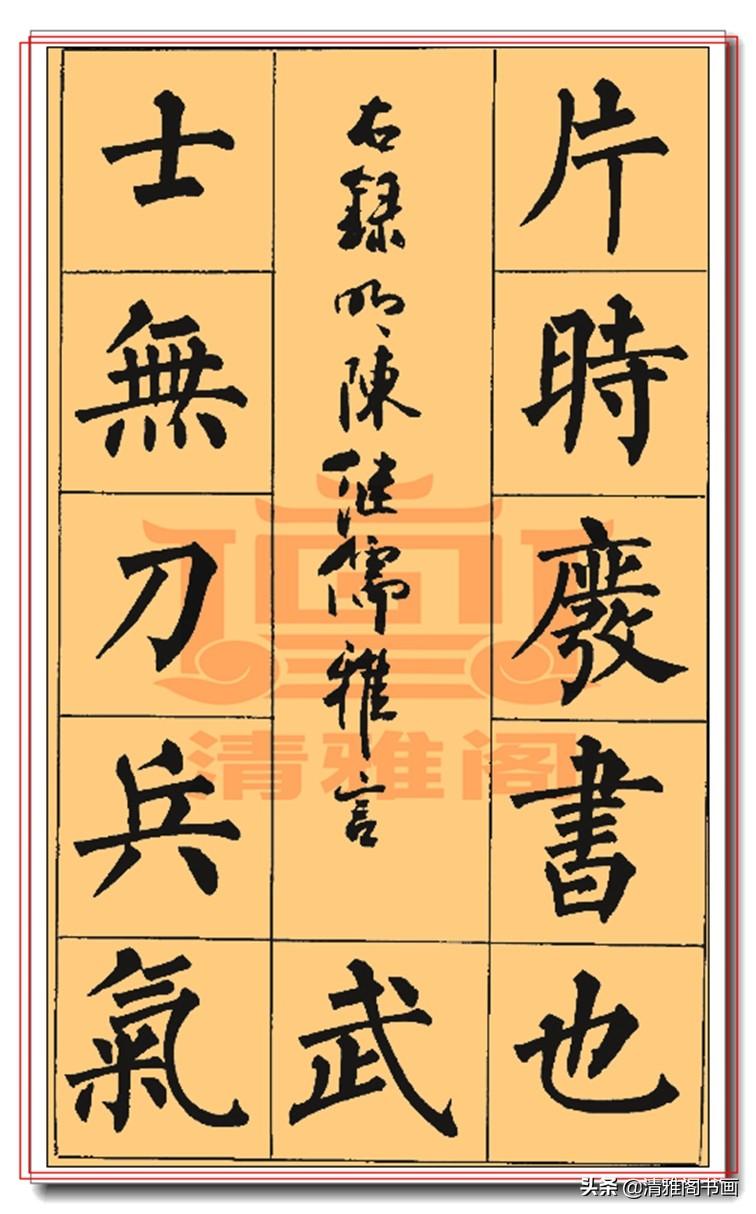 片時廢書也
右録明陳继儒雅言
武
士無刀兵氣
清雅阁
头条 @清雅阁书画